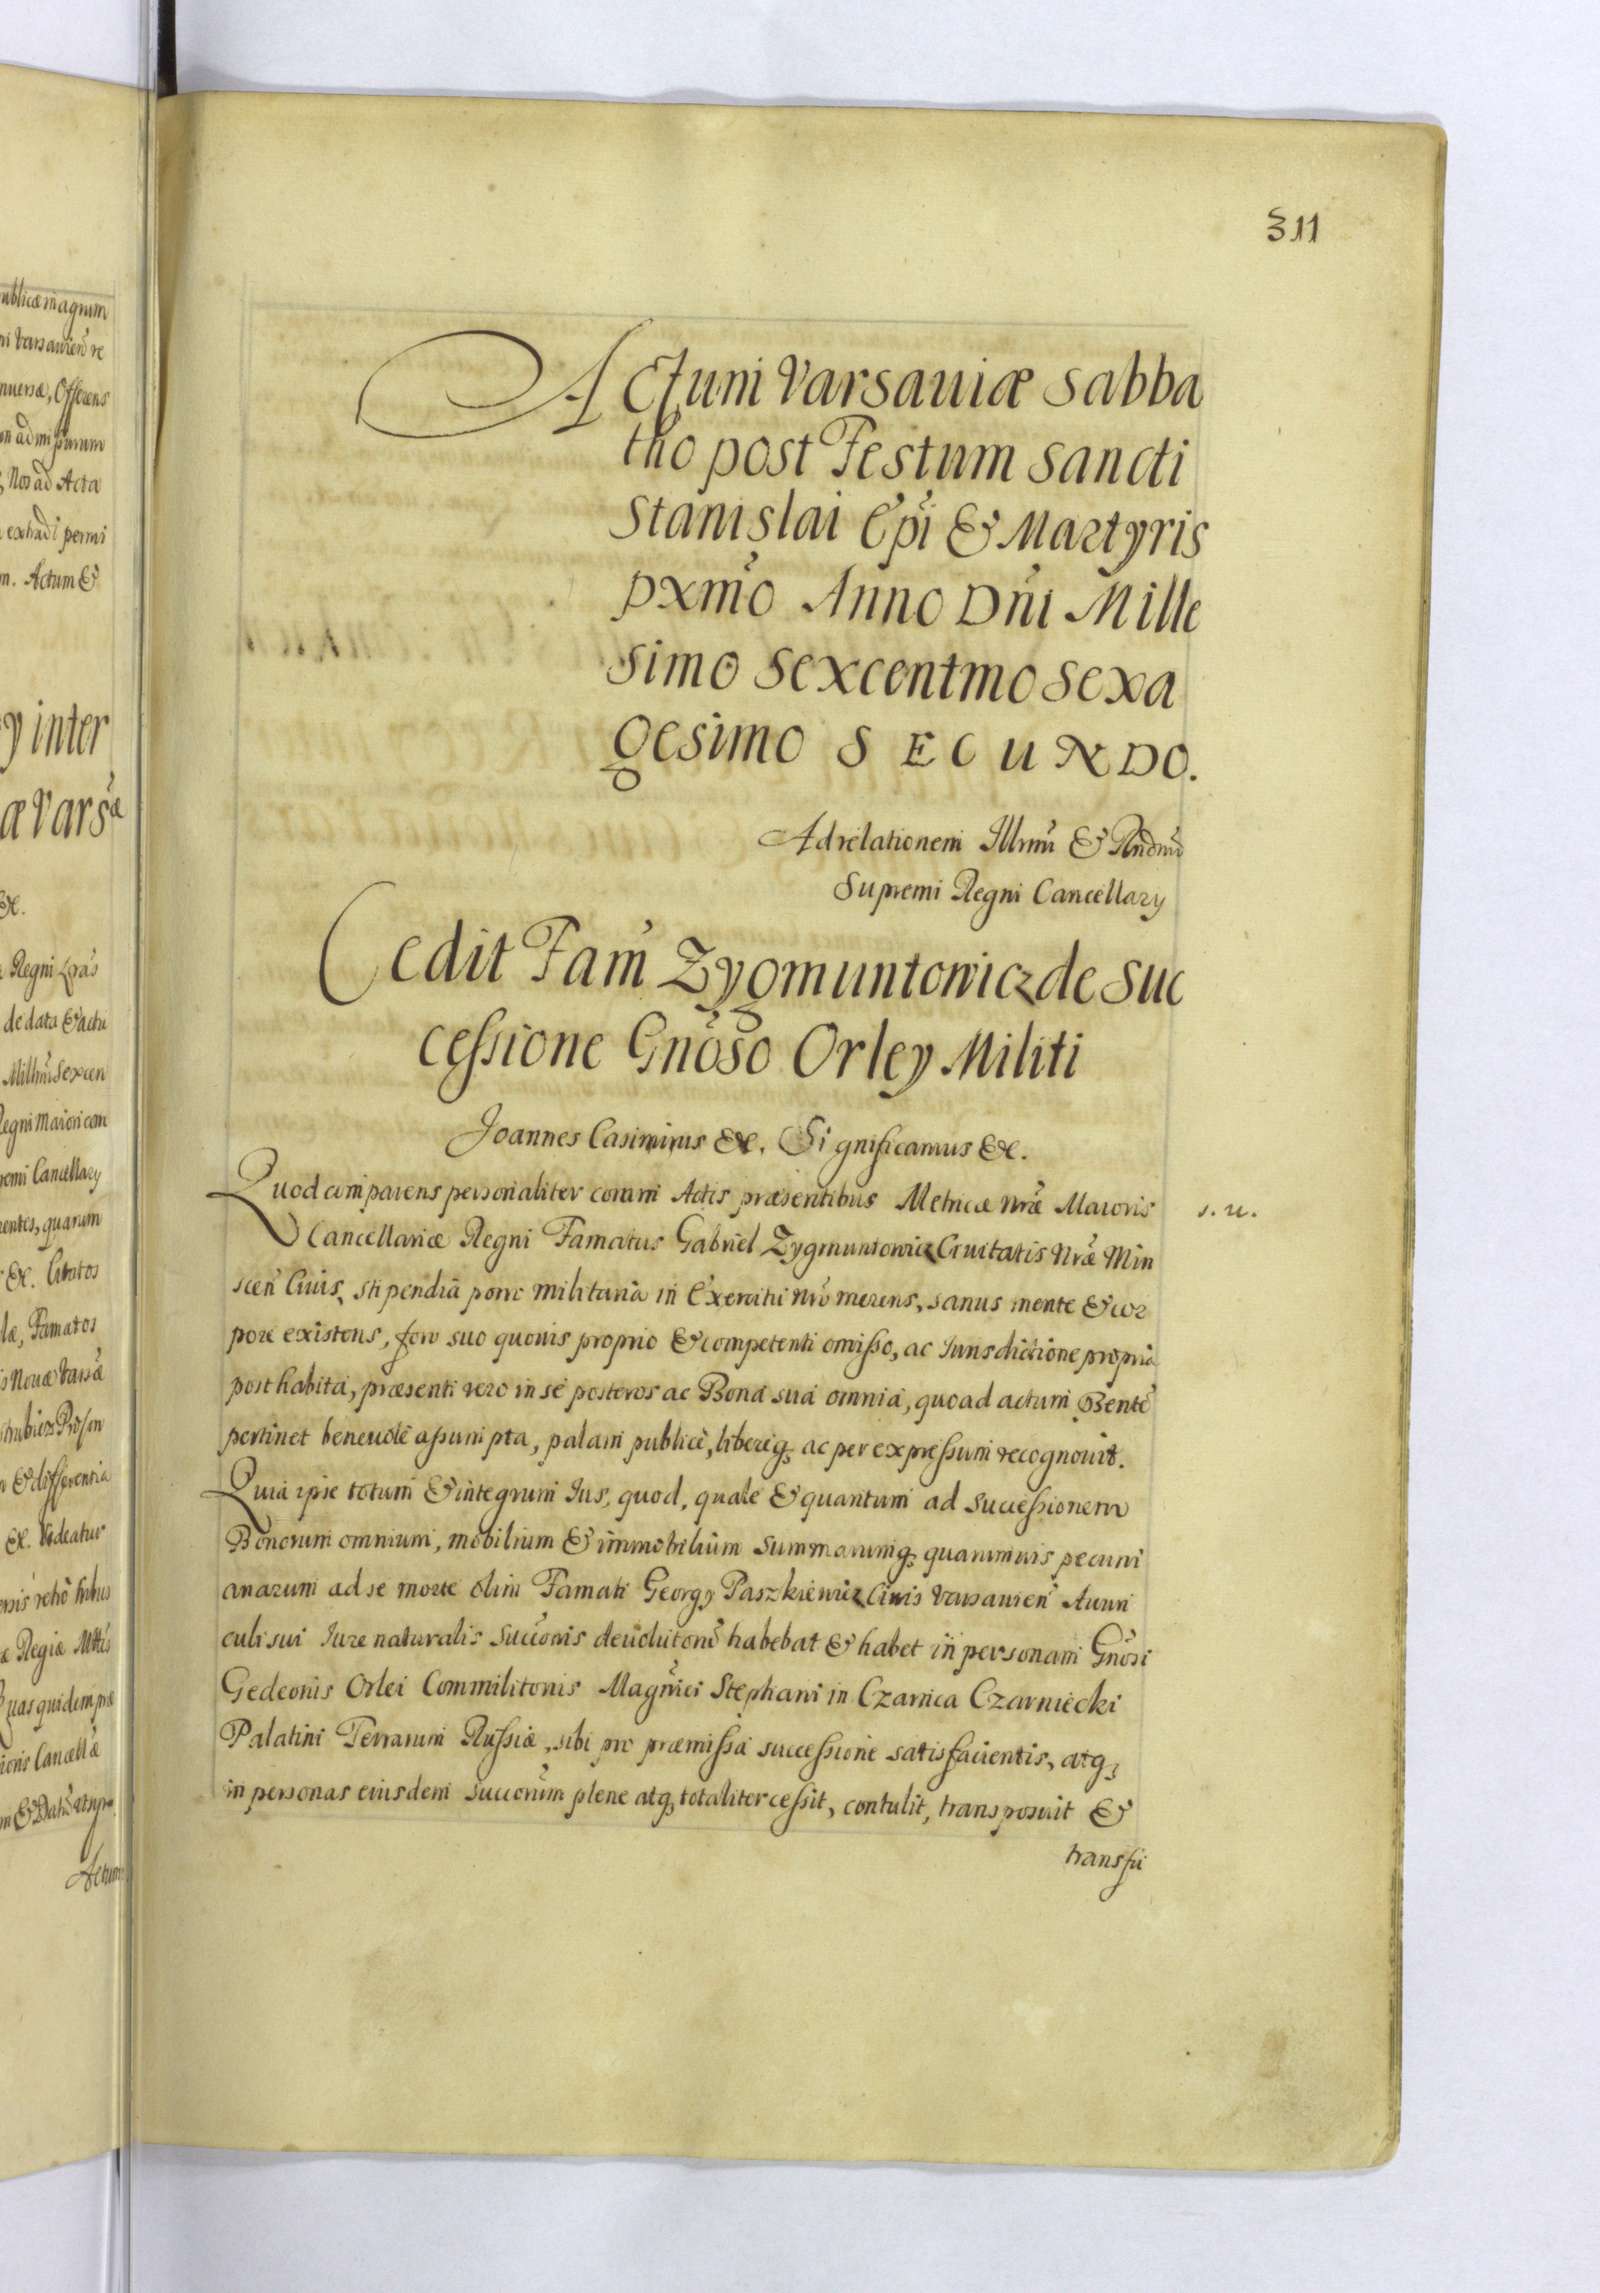 311
Actum Varsauiæ Sabba
tho post Festum Sancti
Stanislai Epi & Martyris
pxmo Anno Dni Mille
simo Sexcentmo Sexa
gesimo SECUNDO.
Ad relationem Illrmi & Rndmi
Supremi Regni Cancellary
Cedit Fam Zygmuntowicz de Suc
cessione Gnoso Orley Militi
Joannes Casimirus &c. Significamus &c.
Quod comparens personaliter coram Actis præsentibus Metricæ Nræ Maioris
s. u.
Cancellariæ Regni Famatus Gabriel Zygmuntowicz Ciuitatis Nræ Min
scen Ciuis, stipendia porro militaria in Exercitu Nro merens, sanus mente & cor
pore existens, foro suo quouis proprio & competenti omisso, ac Iurisdictione propria
posthabita, præsenti vero in se posteros ac Bona sua omnia, quoad actum
pertinet beneuole assumpta, palam publice, libereq, ac per expressum recognouit.
Quia ipse totum & integrum Ius, quod, quale & quantum ad Successionem
Bonorum omnium, mobilium & immobilium Summarumq, quarumuis pecuni
ariarum ad se morte olim Famati Georgy Paszkiewicz Ciuis Varsauien Auun
culi sui Iure naturalis Succonis deuolutorum habebat & habet in personam Gnosi
Gedeonis Orlei Commilitonis Magnici Stephani in Czarnca Czarniecki
Palatini Terrarum Russiæ, sibi pro præmissa successione satisfacientis, atq,
in personas eiusdem Succorum plene atq, totaliter cessit, contulit, transposuit &
transfu
ublicæ magnum
Offerens
Nos ad Acta
extradi permi
m. Actum &
y inter
æ Vars
&c.
Regni
de data & actu
Sexcen
Regni Maiori can
remi Cancellary
entes, quarum
&c. Citatos
læ, Famatos
is Nouæ Varsæ
& differentia
&c. Videatur
æ Regiæ
Quas quidem præ
ioris Cancellæ
Actum